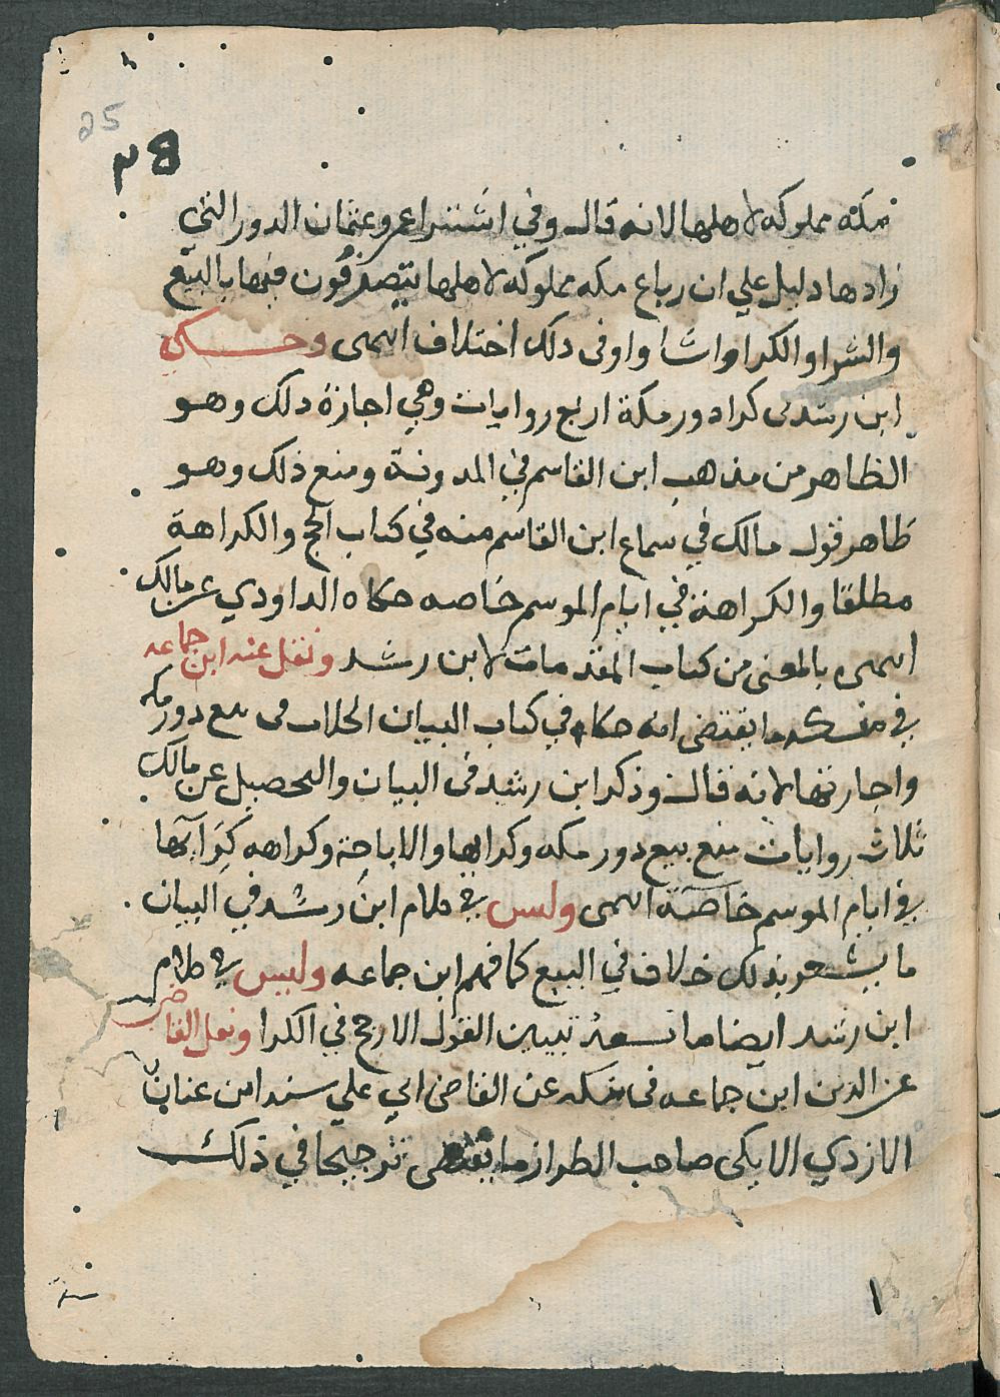 25
٢٥
مكة مملوكه لاهلها لانه قال وفي اشتراء عمر وعثمان الدور التي
زادها دليل علي ان رباع مكه مملوكه لاهلها يتصرفون فيها بالبيع
والشرا والكرا واشاوا وفى دلك اختلاف انتهى وحكي
ابن رشد فى كرا دور مكة اربع روايات وهي اجازة دلك وهو
الظاهر من مذهب ابن القاسم في المدونة ومنع ذلك وهو
ظاهر قول مالك في سماع ابن القاسم منه في كتاب الحج والكراهة
مطلقا والكراهة في ايام الموسم خاصه حكاه الداودي عن مالك
انتهى بالمعنى من كتاب المقدمات لابن رشد ونقل عنه ابن جماعه
في منسكه ما يقتضى انه حكا في كتاب البيان الخلاف فى بيع دور مكه
واجارتها لانه قال وذكر ابن رشد فى البيان والتحصيل عن مالك
ثلاث روايات منع بيع دور مكه وكرايها والاباحة وكراهه كرايها
في ايام الموسم خاصة انتهى وليس في كلام ابن رشد في البيان
ما يشعر بذلك خلاف في البيع كما فهم ابن جماعه وليس في كلام
ابن رشد ايضا ما تبين القول الارجح في الكرا ونقل القاضى
عز الدين ابن جماعه فى منسكه عن القاضى ابي علي سند ابن عنان
الازدي المالكى صاحب الطراز ما يقتضى ترجيحا في ذلك